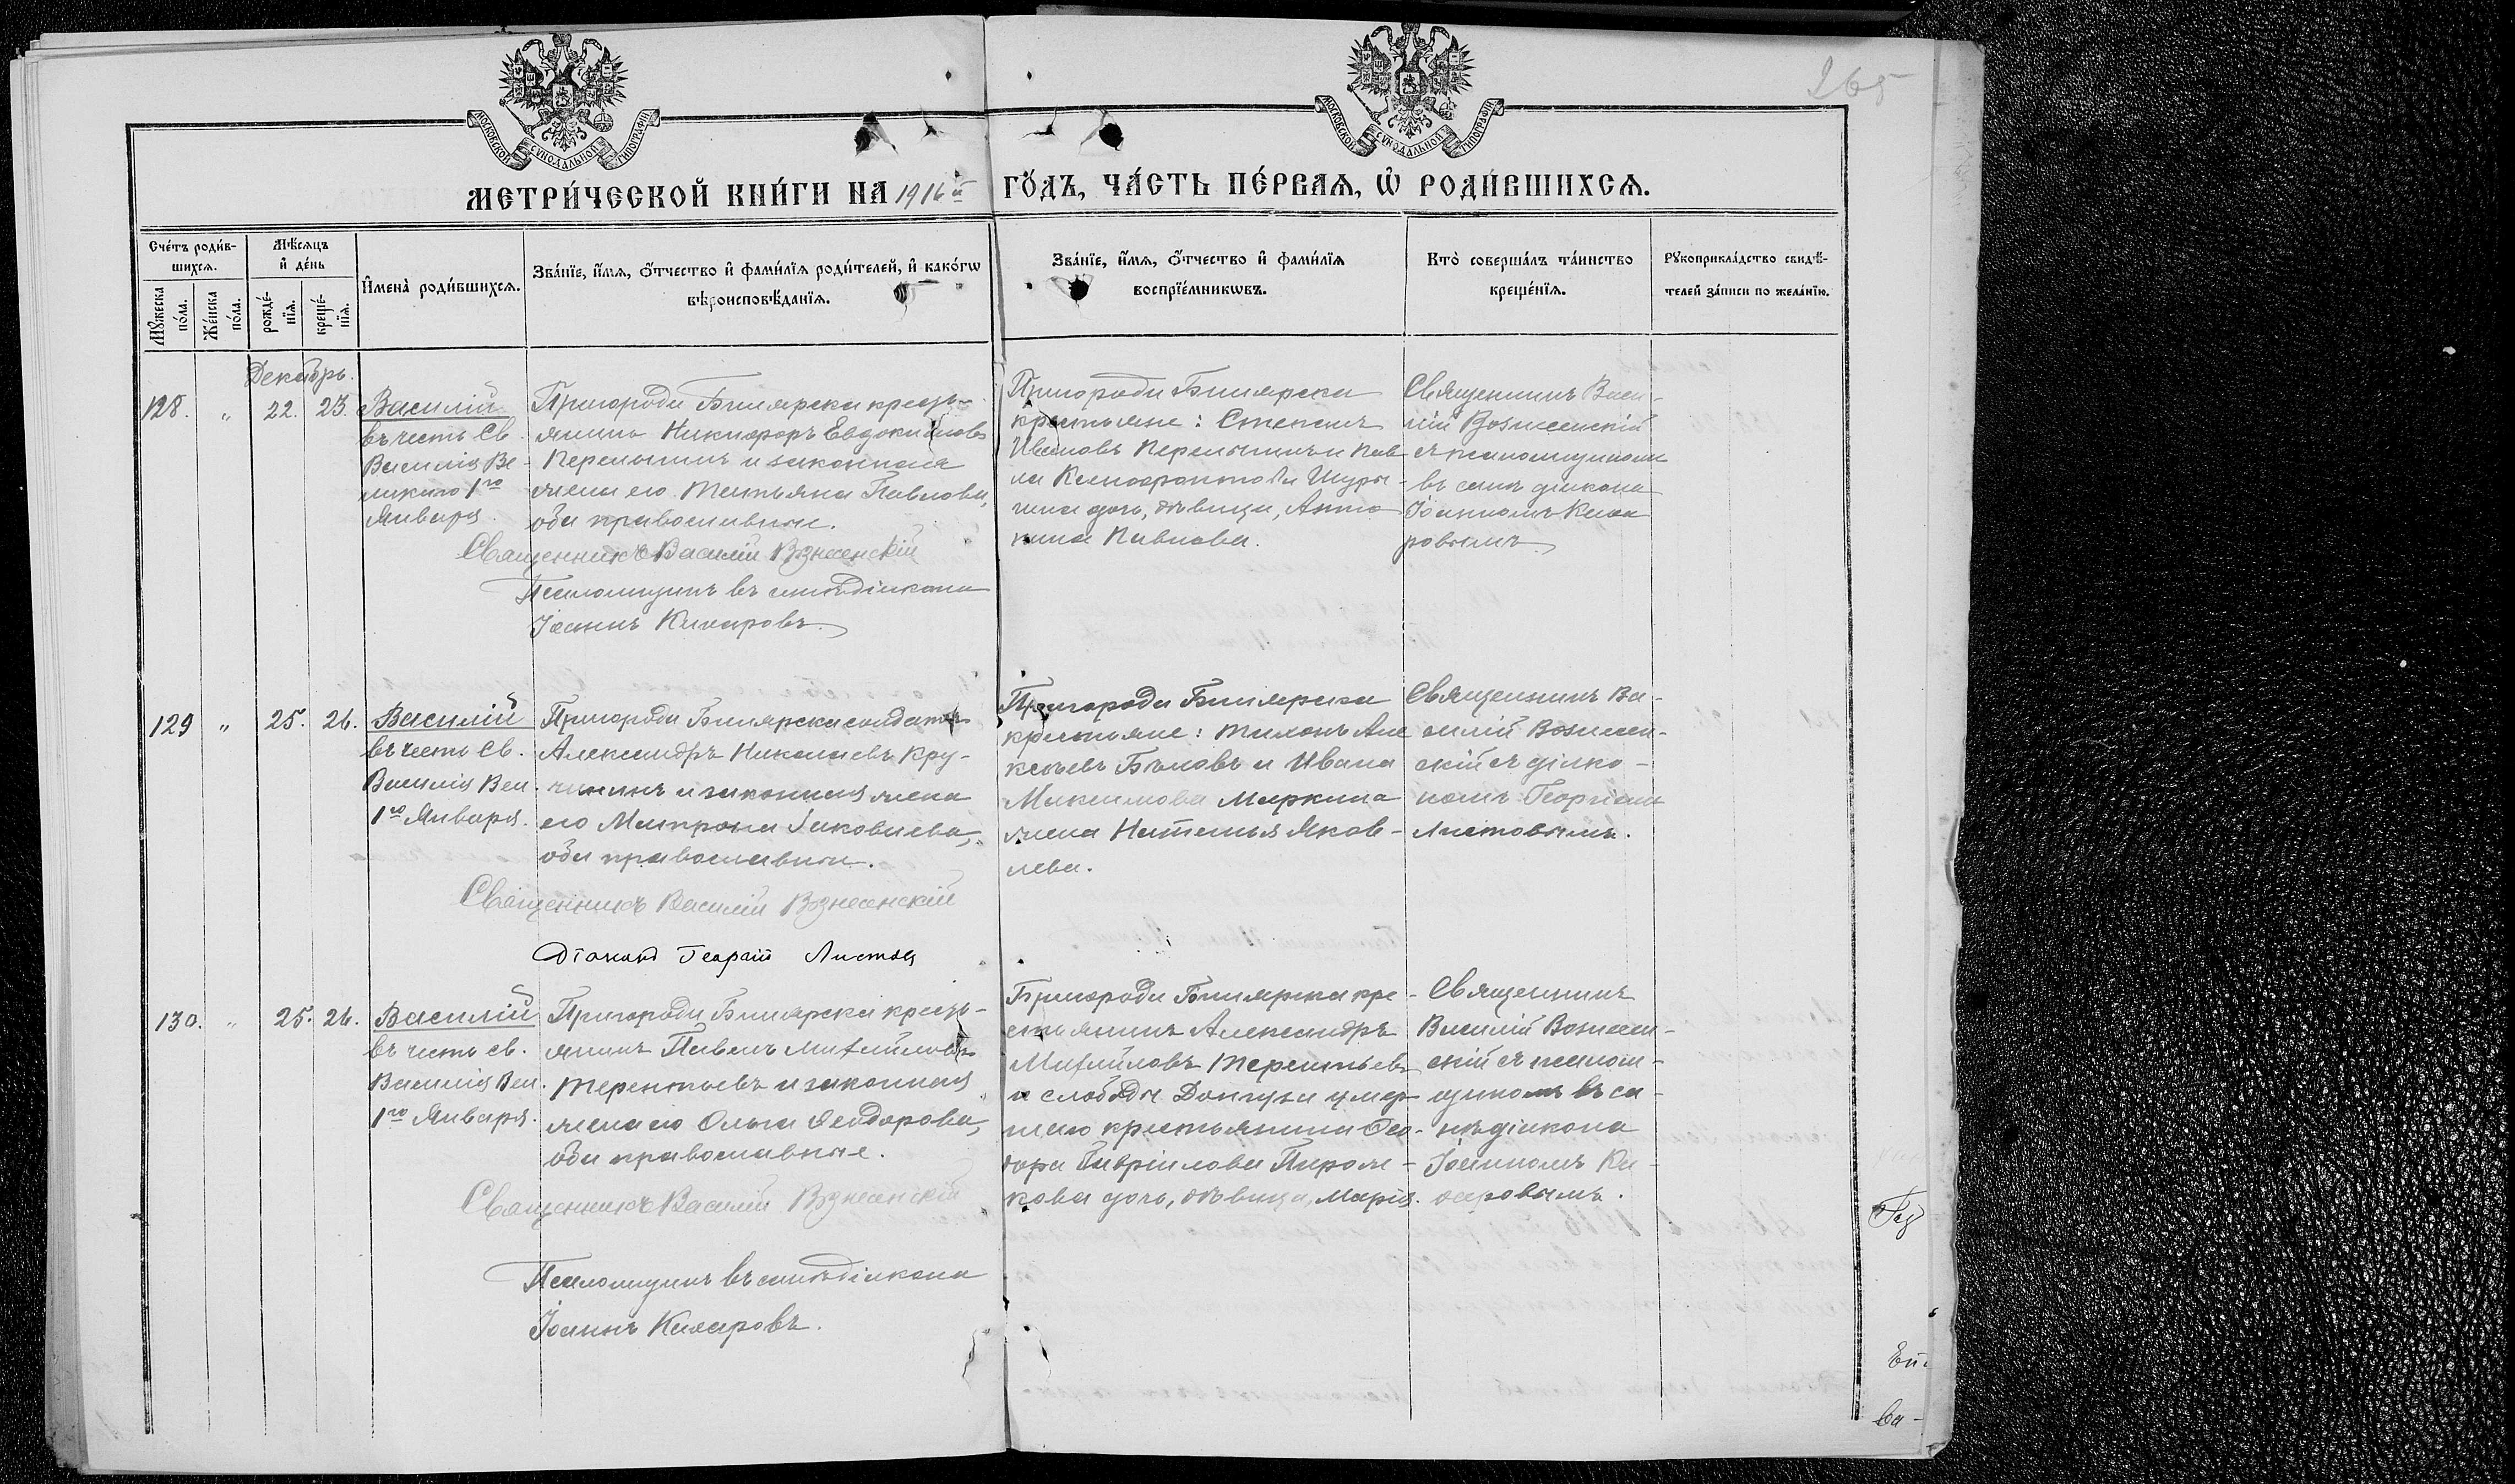 265
МОСКОВСКОЙ СѴНОДАЛЬНОЙ ТИПОГРАФІИ
МОСКОВСКОЙ СѴНОДАЛЬНОЙ ТИПОГРАФІИ
МЕТРИ́ЧЕСКОЙ КНИ́ГИ НА 1916й
ГО́ДЪ, ЧА́СТЬ ПЕ́РВАѦ, Ѡ҆ РОДИ́ВШИХСѦ.
Сче́тъ роди́в-
шихсѧ.
Мꙋ́жеска по́ла.
Же́нска по́ла.
Мѣ́сѧцъ
и҆ де́нь
рожде́-нїѧ.
креще́-нїѧ.
И҆мена̀ роди́вшихсѧ.
Зва́нїе, и҆́мѧ, ѻ҆́тчество и҆ фами́лїѧ роди́телей, и҆ како́гѡ
вѣроисповѣ́данїѧ.
Зва́нїе, и҆́мѧ, ѻ҆́тчество и҆ фами́лїѧ
воспрїе́мникѡвъ.
Кто̀ соверша́лъ та́инство
креще́нїѧ.
Рꙋкоприкла́дство свидѣ́-
телей за́писи по жела́нїю.
Декабрь.
128. " 22. 23.
Василій
въ честь Св.
Василія Ве-
ликаго 1го
Января.
Пригорода Билярска кресть-
янинъ Никифоръ Евдокимовъ
и законная
жена его Татьяна Павлова,
оба православные.
Священникъ Василій Вознесенскій
Псаломщикъ въ санѣ діакона
Іоаннъ
Пригорода Билярска
крестьяне: Степанъ
Ивановъ и Пав
ла Ксенофонтова
дочь, дѣвица, Анто
нина Павлова.
Священникъ Васи-
лій Вознесенскій
съ псаломщикомъ
въ санѣ діакона
Іоанномъ
ровымъ.
129 " 25. 26.
Василій
въ честь Св.
Василія Вел.
1го Января.
Пригорода Билярска солдатъ
Александръ Николаевъ Кру-
чининъ и законная жена
его Матрона Іаковлева,
оба православные.
Священникъ Василій Вознесенскій
Діаконъ Георгій Листовъ
Пригорода Билярска
крестьяне: Тихонъ Але
ксѣевъ Бѣловъ и Ивана
Максимова Маркина
жена Наталья Яков-
лева.
Священникъ Ва-
силій Вознесен-
скій съ діако-
номъ Георгіемъ
Листовымъ.
130. " 25. 26.
Василій
въ честь св.
Василія Вел.
1го Января.
Пригорода Билярска кресть-
янинъ Павелъ Михайловъ
Терентьевъ и законная
жена его Ольга Ѳеодорова,
оба православные.
Священникъ Василій Вознесенскій
Псаломщикъ въ санѣ діакона
Іоаннъ
Пригорода Билярска кре-
стьянинъ Александръ
Михайловъ Терентьевъ
и слободы умер-
шаго крестьянина Ѳео-
дора Гавріилова Пирож-
кова дочь, дѣвица, Марія.
Священникъ
Василій Вознесен-
скій съ псалом-
щикомъ въ са-
нѣ діакона
Іоанномъ
ровымъ.
ва-